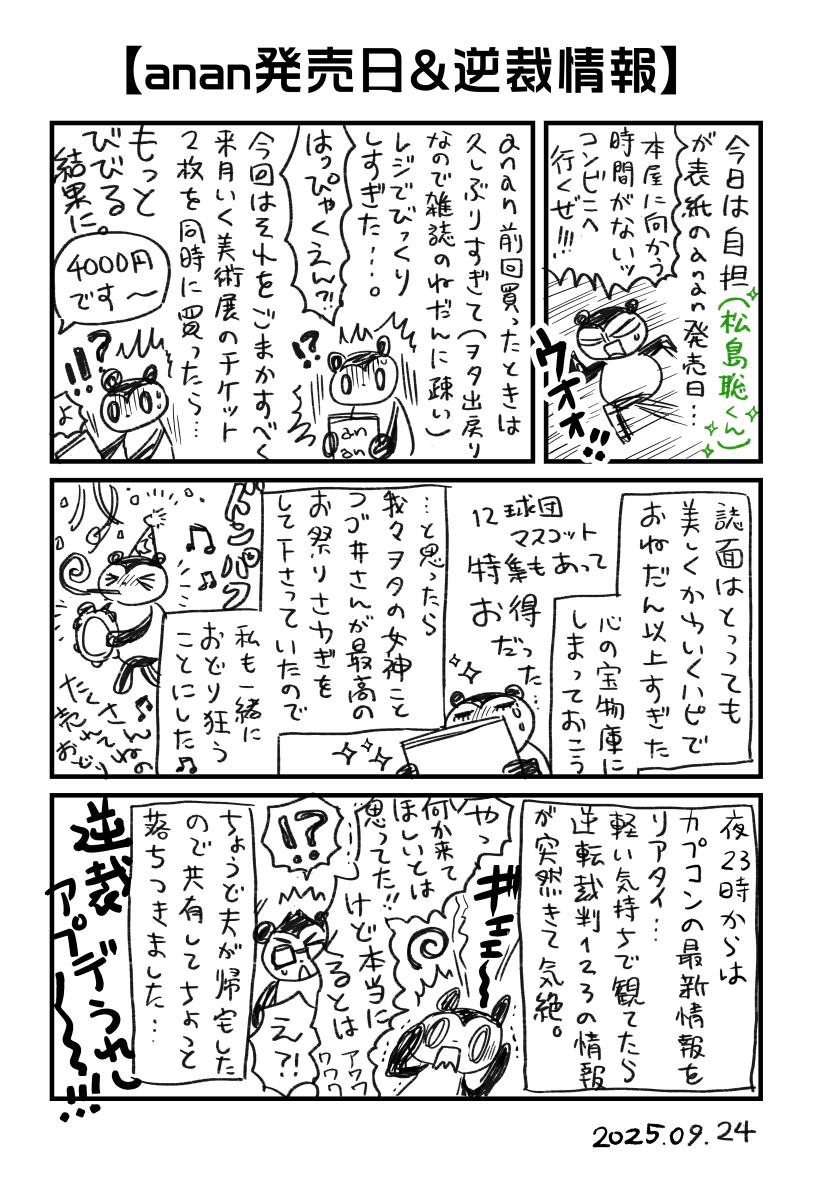 【anan発売日&逆裁情報】
今日は自担(松島聡くん)
が表紙のanan発売日…
本屋に向かう
時間がないッ
コンビニへ
行くぜ!!!
ウオオ!!
anan前回買ったときは
久しぶりすぎて(ヲタ出戻り
なので雑誌のねだんに疎い)
レジでびっくり
しすぎた…。
はっぴゃくえん?!
!?
an
an
今回はそれをごまかすべく
来月いく美術展のチケット
2枚を同時に買ったら…
もっと
びびる
結果に。
4000円
です〜
!!?
誌面はとってても
美しくかわいくハピで
おねだん以上すぎた
心の宝物庫に
しまっておこう
12球団
マスコット
特集もあって
お得
だった…
…と思ったら
我々ヲタの女神こと
つづ井さんが最高の
お祭りさわぎを
して下さっていたので
ドンパフ
私も一緒に
おどり狂う
ことにした♫
たくさん
売れてんねの
おどり
夜23時からは
カプコンの最新情報を
リアタイ…
軽い気持ちで観てたら
逆転裁判123の情報
が突然きて気絶。
ギエエ〜
やっ
何か来て
ほしいとは
思ってた!!
けど本当に
くるとは
アワワ
ワワワ
!?
え?!
ちょうど夫が帰宅した
ので共有してちょっと
落ちつきました…
逆裁
アプデうれし
〜〜!!!
2025.09.24